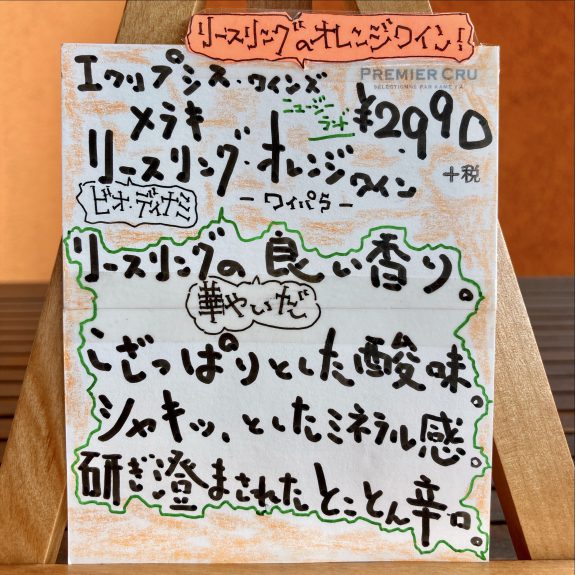 リースリングのオレンジワイン!
PREMIER CRU
エクリプシス・ワインズ
ニュージーランド
¥2990
+税
メラキ
リースリング・オレンジワイン
ーワイパラー
ビオ・ディナミ
リースリングの良い香り。
華やいだ
しざっぱりとした酸味。
シャキッ、としたミネラル感。
研ぎ澄まされたとことん辛口。